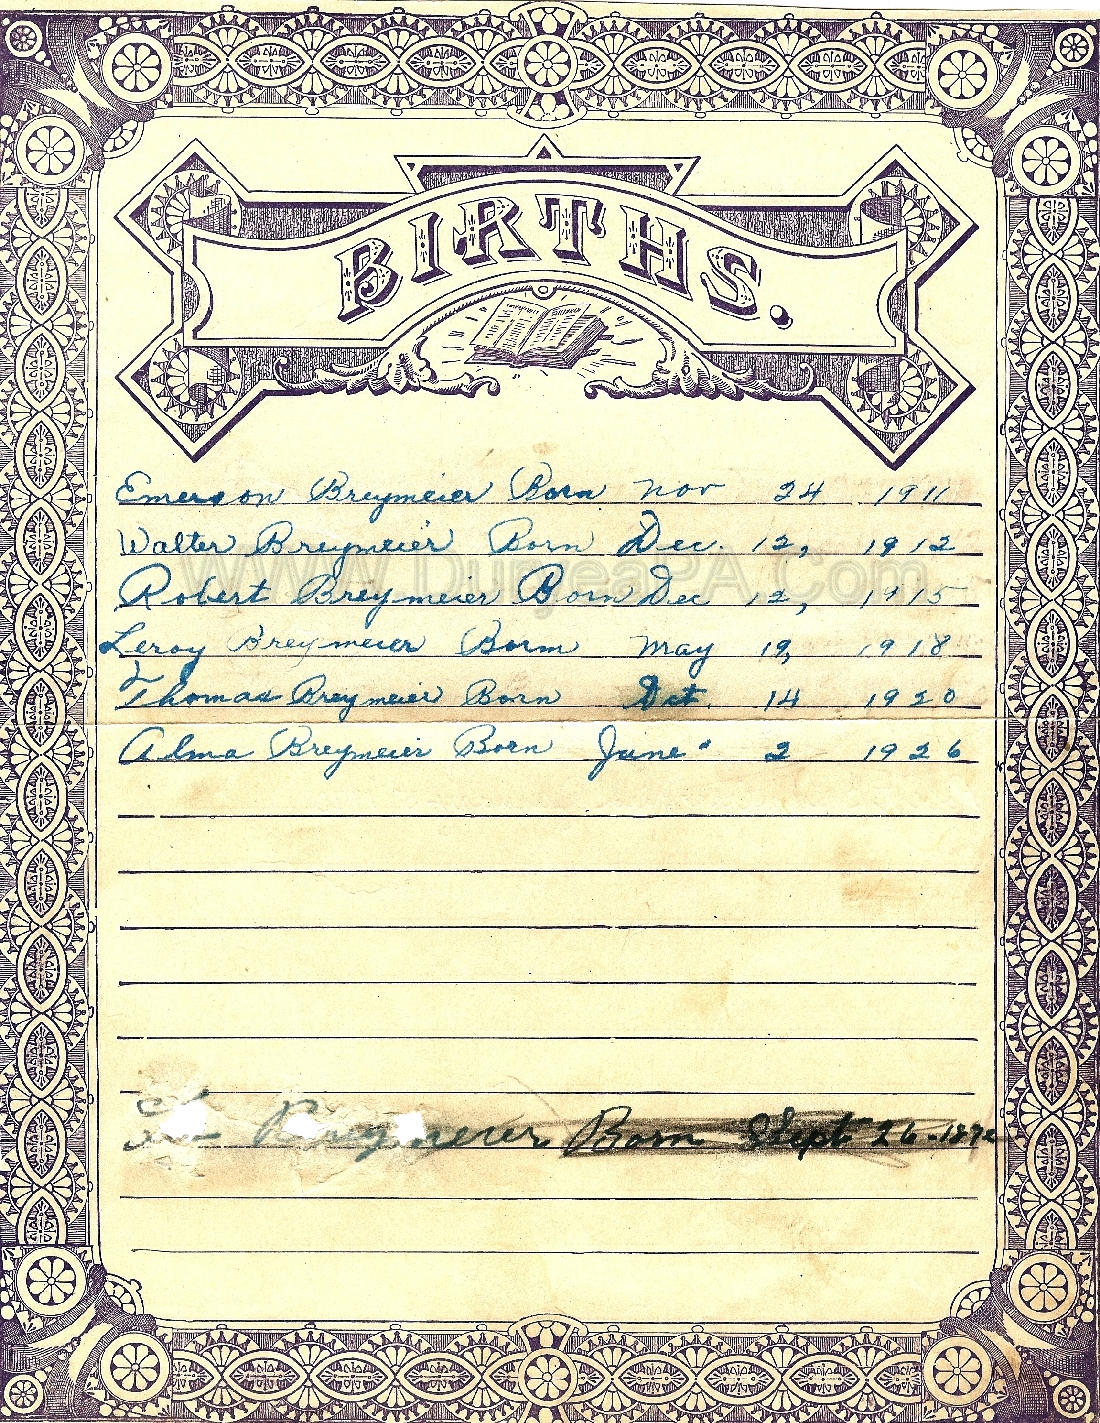 BIRTHS.
Emerson Breymeier Born Nov 24 1911
Walter Breymeier Born Dec. 12, 1912
www.DuryeaPA.Com
Robert Breymeier Born Dec 12, 1915
Leroy Breymeier Born May 19, 1918
Thomas Breymeier Born Oct. 14 1920
Alma Breymeier Born June 2 1926
Breymeier Born Sept 26-189